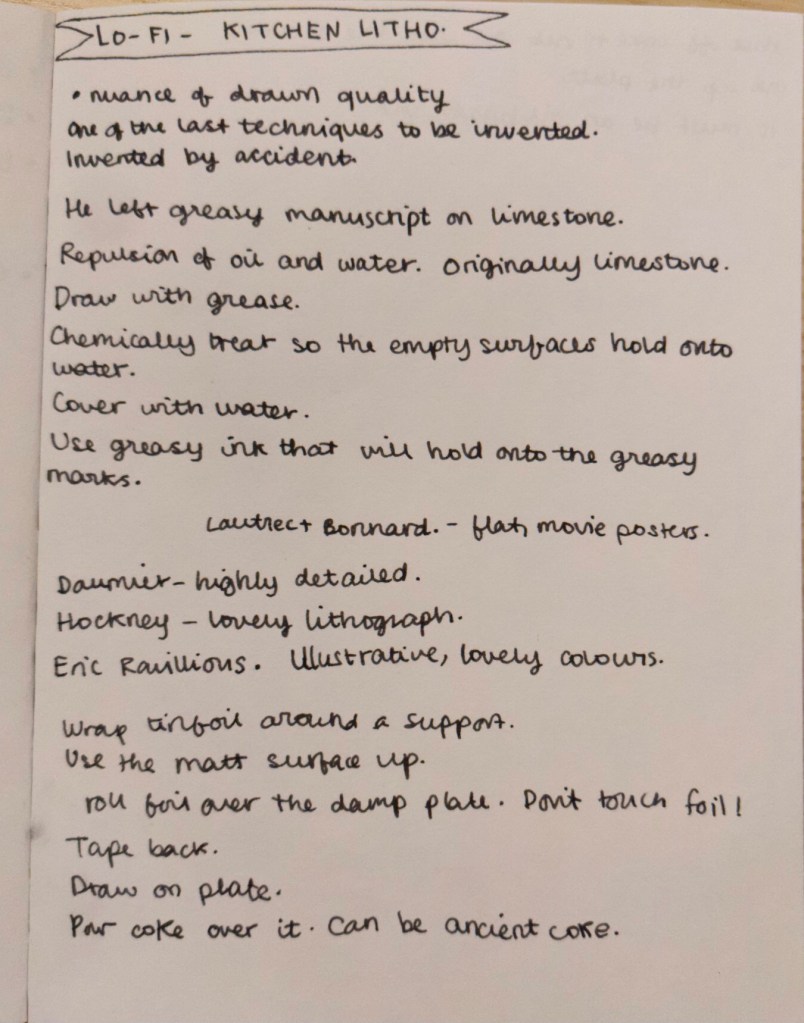 LO-FI - KITCHEN LITHO.
• nuance of drawn quality
One of the last techniques to be invented.
Invented by accident.
He left greasy manuscript on limestone.
Repulsion of oil and water. Originally limestone.
Draw with grease.
Chemically treat so the empty surfaces hold onto
water.
Cover with water.
Use greasy ink that will hold onto the greasy
marks.
Lautrec + Bonnard. - flat, movie posters.
Daumier - highly detailed.
Hockney - lovely lithograph.
Eric Ravillious. Illustrative, lovely colours.
Wrap tinfoil around a support.
Use the matt surface up.
roll foil over the damp plate. Don't touch foil!
Tape back.
Draw on plate.
Pour coke over it. Can be ancient coke.